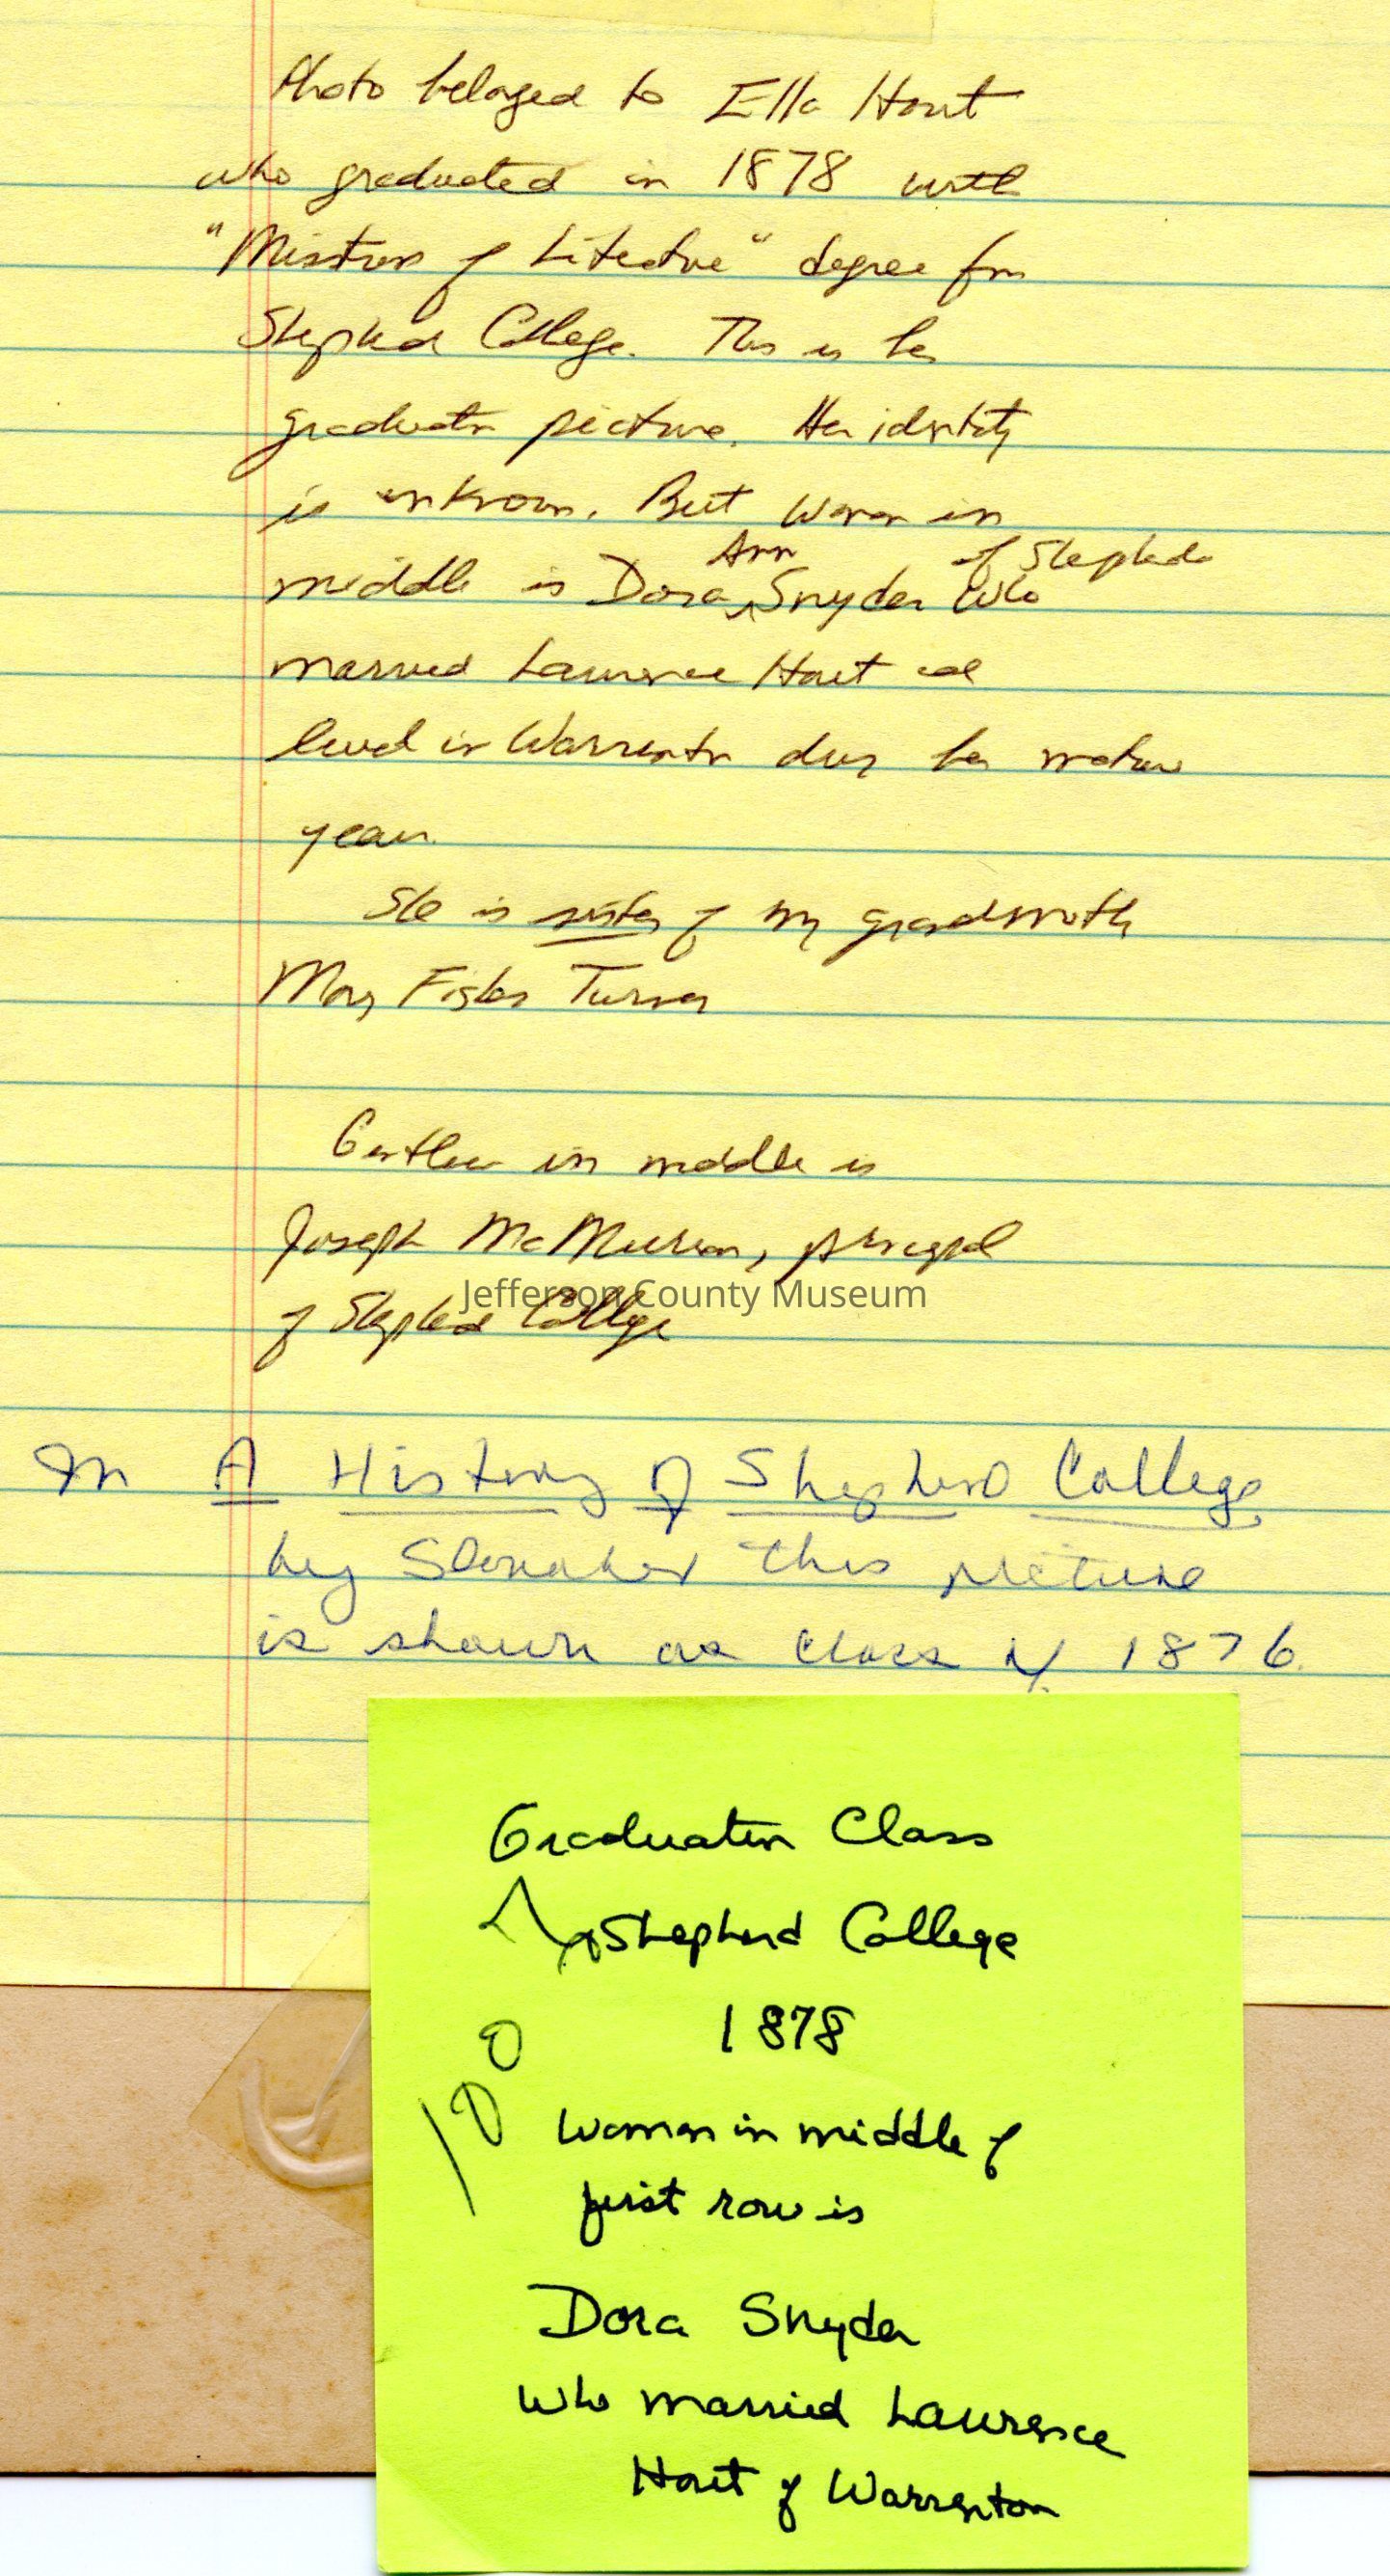 Photo belonged to Ella Hout
who graduated in 1878 with
"Mistress of Literature" degree from
Shepherd College. This is her
graduation picture. Her identity
is unknown. But woman in
Ann of Shepherd
middle is Dora Snyder who
married Laurence Hout and
lived in Warrenton during her mature
years.
She is sister of my grandmother
Mary Fisher Turner
Gentleman in middle is
Joseph McMurran, principal
Jefferson County Museum
of Shepherd College
In A History of Shepherd College
by Slonaker this picture
is shown as class of 1876.
Graduation Class
Shepherd College
1878
Woman in middle of
first row is
Dora Snyder
who married Laurence
Hout of Warrenton